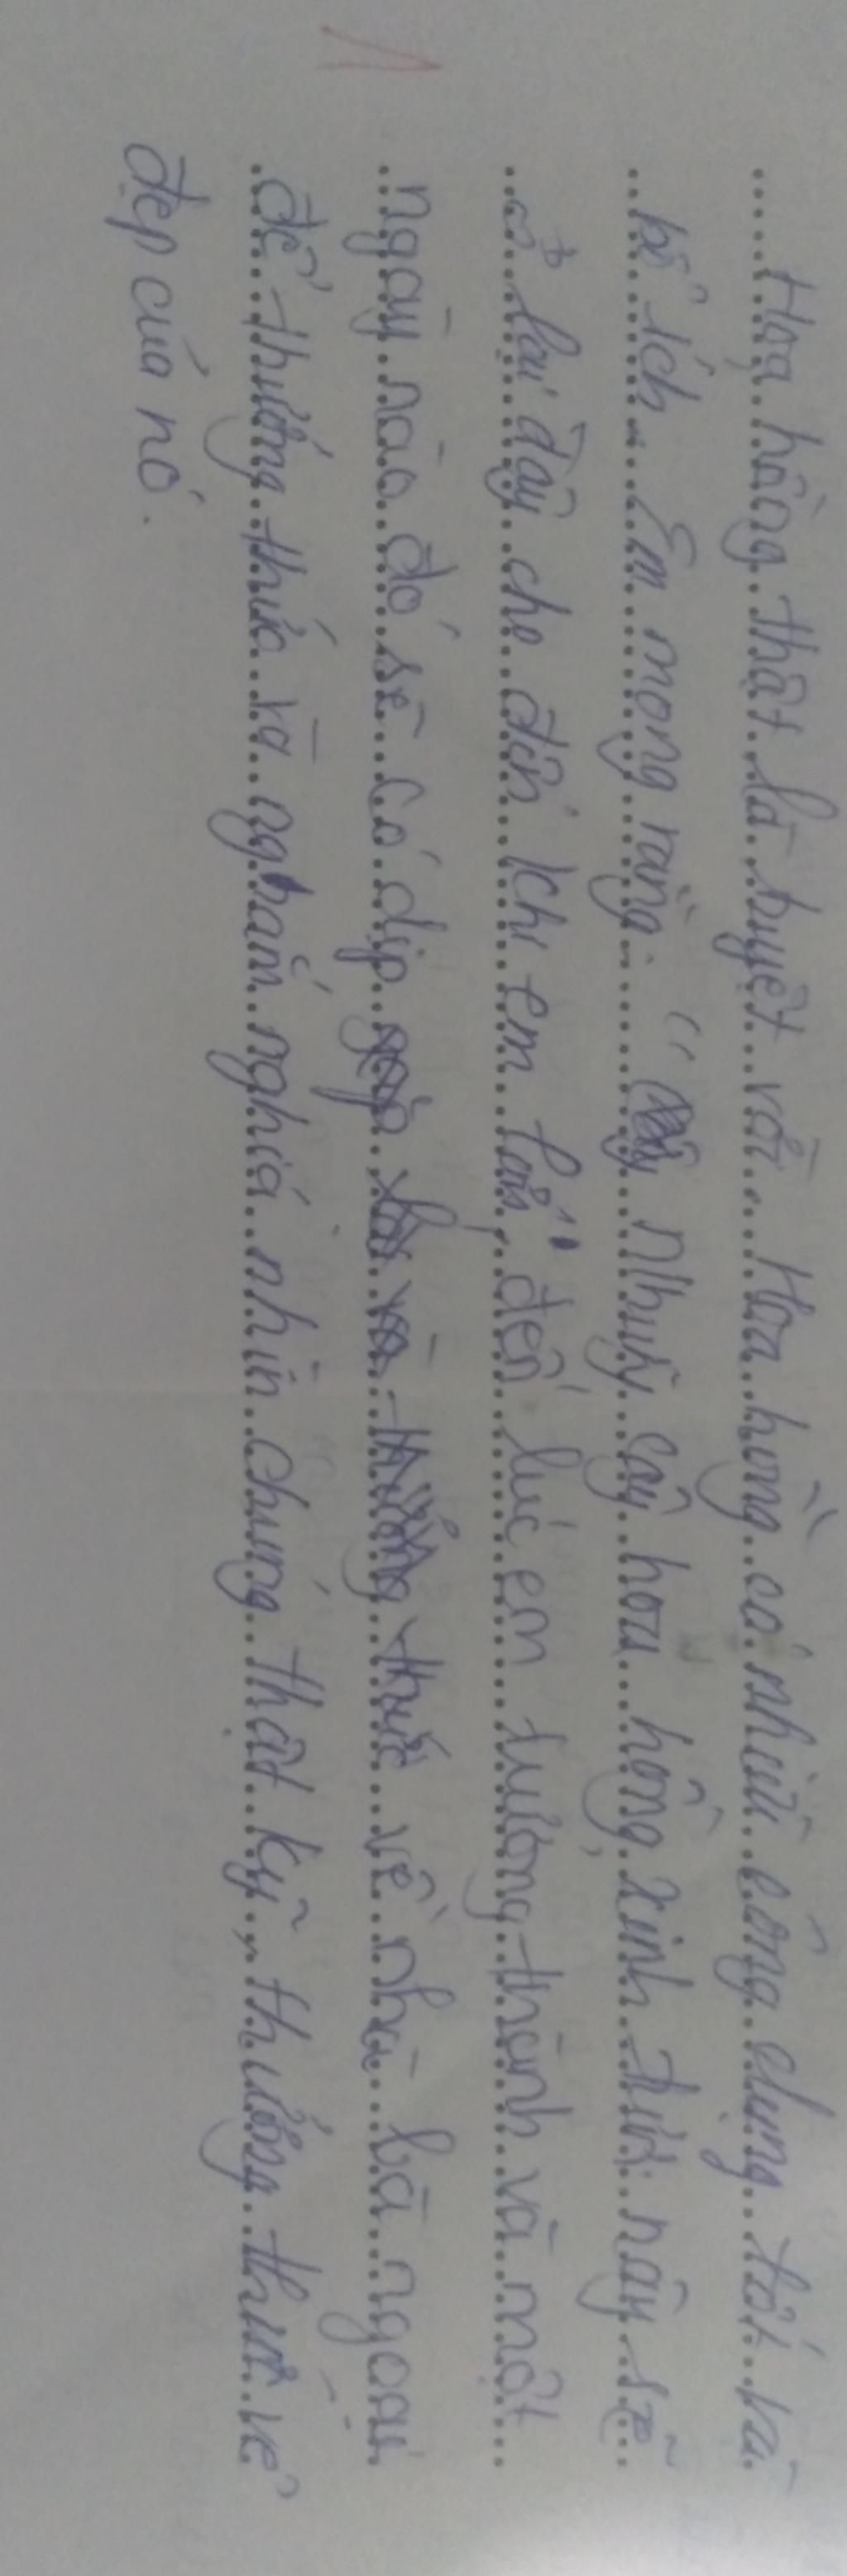 Hoa hồng thật là tuyệt vời. Hoa hồng có nhiều công dụng tốt và
bổ ích. Em mong rằng " Những cây hoa hồng xinh tươi này sẽ
ở lại đây cho đến khi em lớn" đến lúc em trưởng thành và một
ngày nào đó sẽ có dịp về nhà bà ngoại
để thưởng thức và ngắm nghía nhìn chúng thật kỹ, thưởng thức vẻ
đẹp của nó.